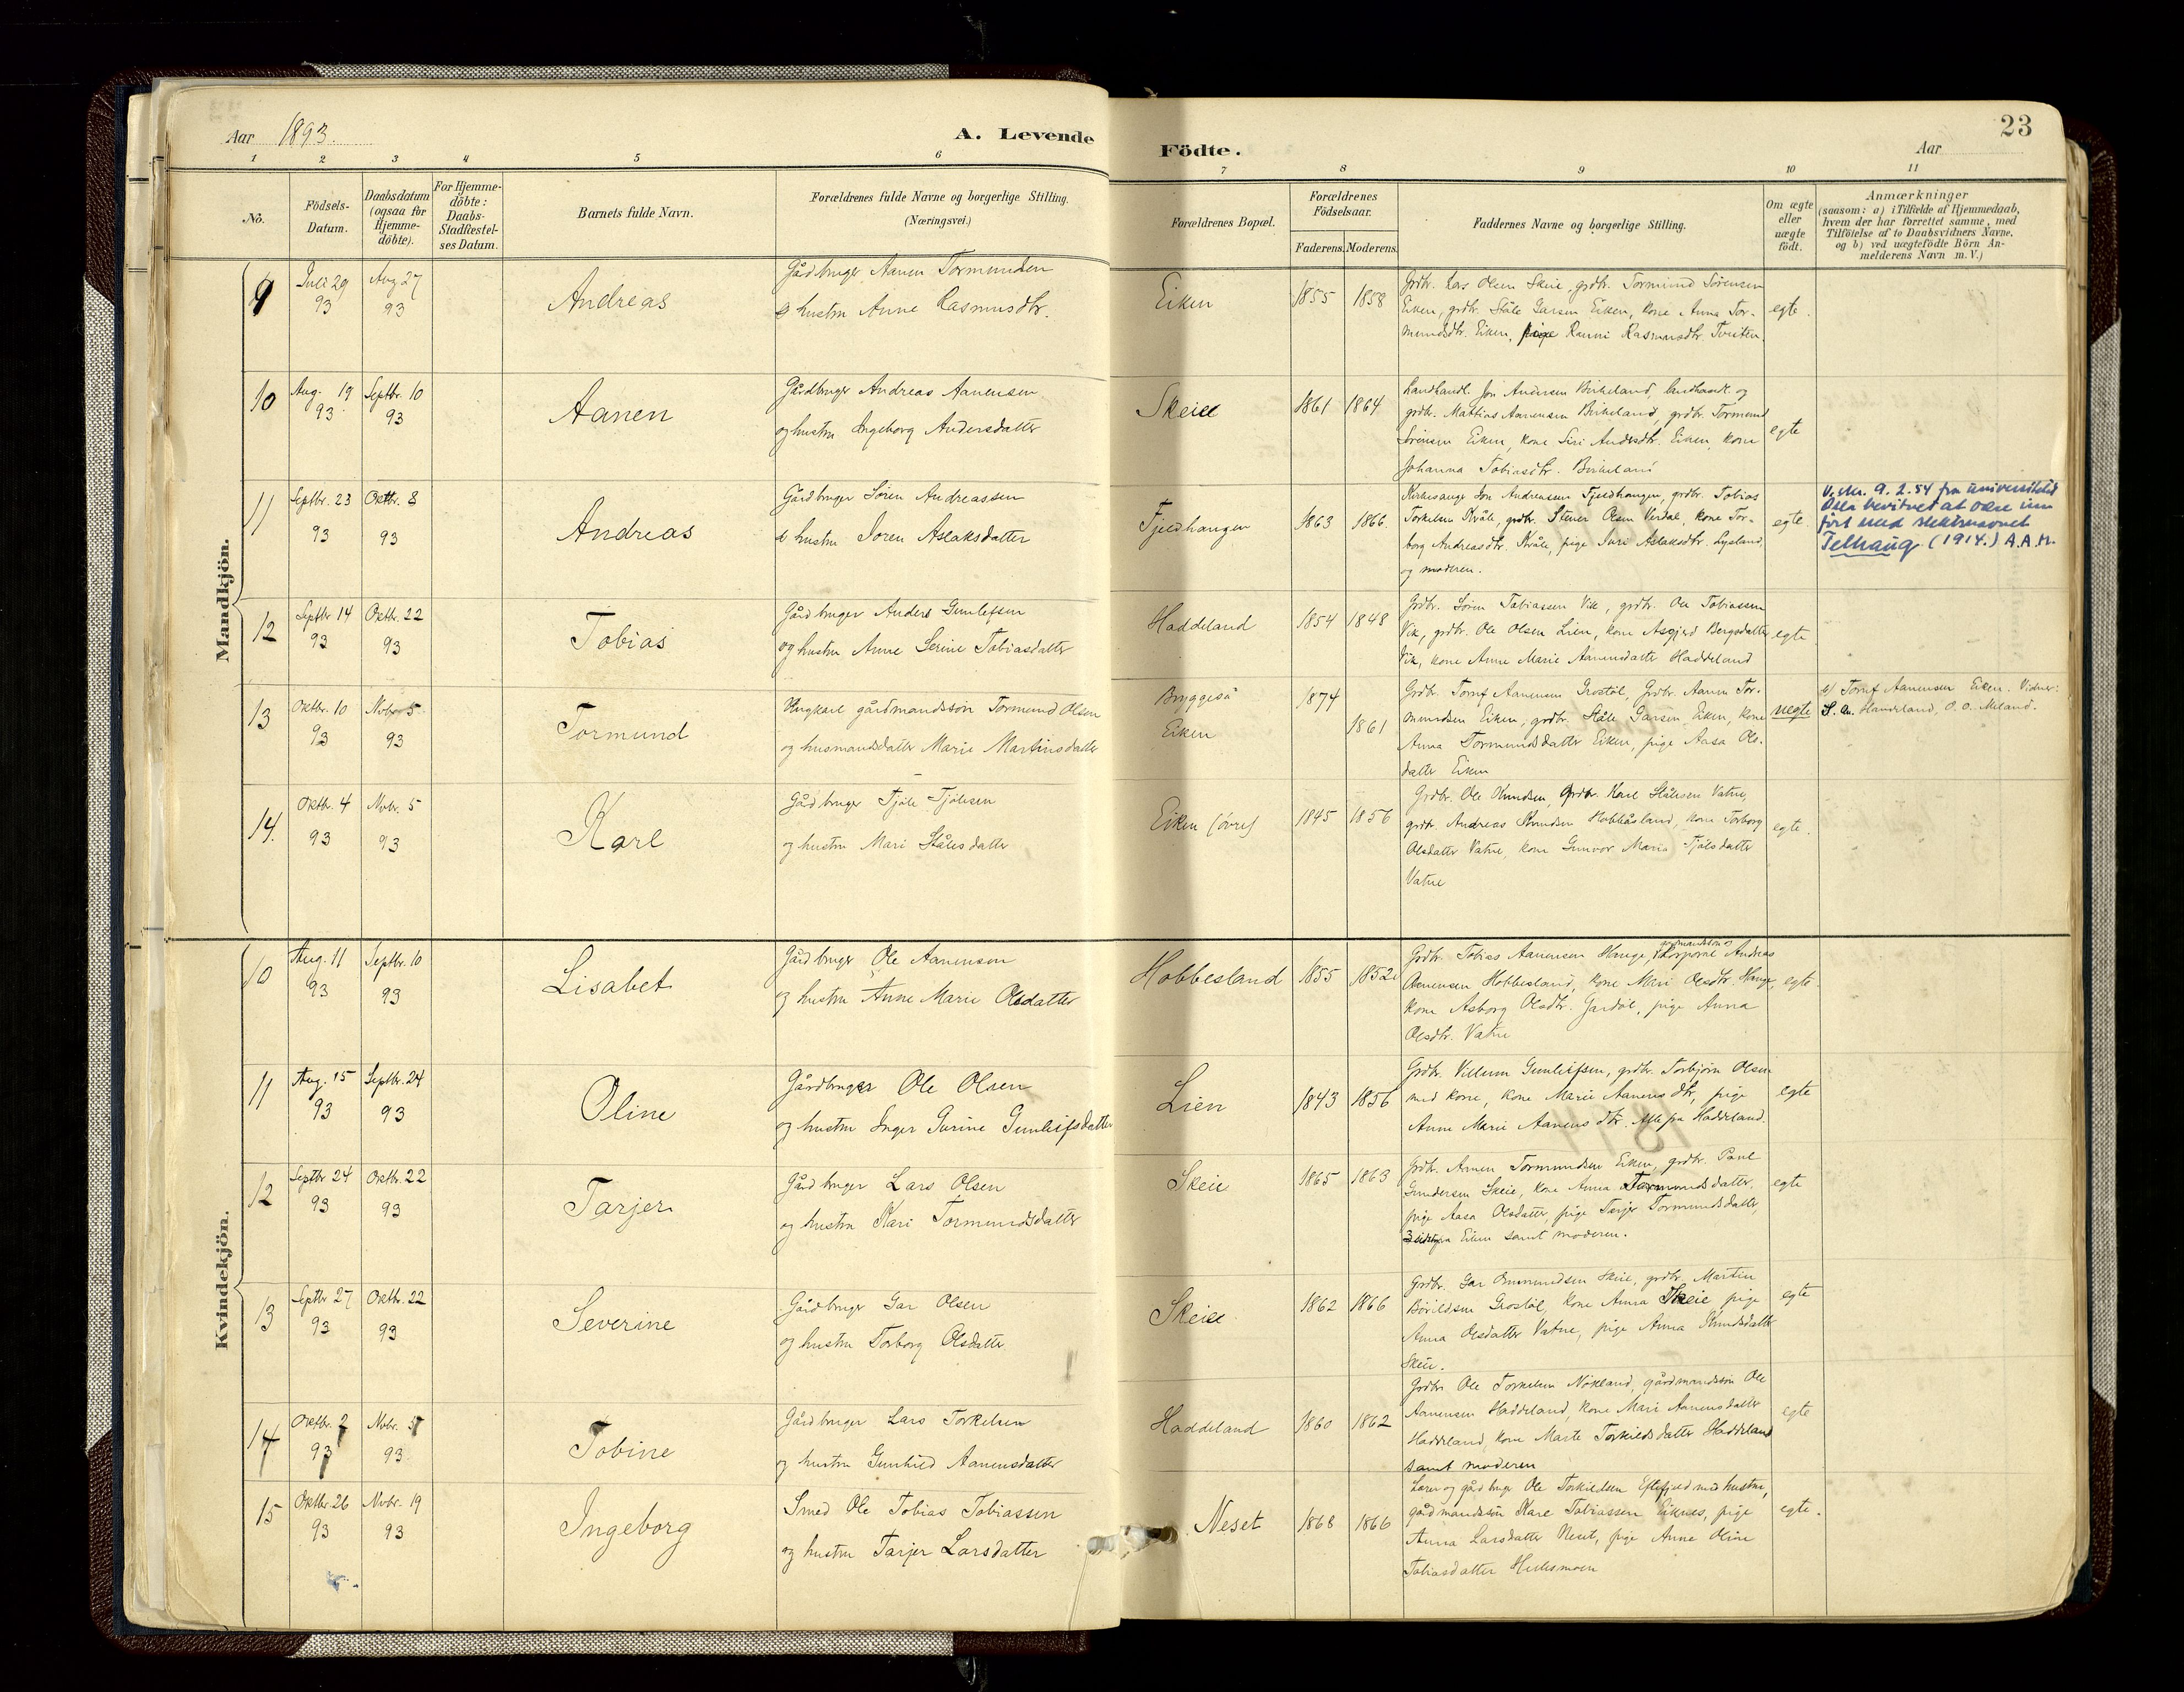 Aar 1893.
A. Levende Födte.
Aar
23
1 2 3 4 5 6 7 8 9 10 11
No.
Födsels-Datum.
Daabsdatum (ogsaa for Hjemme-döbte).
For Hjemme-döbte: Daabs-Stadfæstel-ses Datum.
Barnets fulde Navn.
Forældrenes fulde Navne og borgerlige Stilling. (Næringsvei.)
Forældrenes Bopæl.
Forældrenes Födselsaar.
Faderens. Moderens.
Faddernes Navne og borgerlige Stilling.
Om ægte eller uægte födt.
Anmærkninger
(saasom: a) i Tilfælde af Hjemmedaab,
hvem der har forrettet samme, med
Tilföielse af to Daabsvidners Navne,
og b) ved uægtefödte Börn An-
melderens Navn m. V.)
Mandkjön.
9
Juli 29 93
Aug 27 93
Andreas
Gårdbruger Aanen Tormunden
og hustru Anne Rasmusdtr.
Eiken
1855 1858
Grdbr. Lars Olsen Skeie, grdbr. Tormund Sörensen
Eiken, grdbr. Ståle Garsen Eiken, kone Anna Tor-
mundsdtr. Eiken, pige Ranni Rasmusdtr. Tveiten.
egte.
10
Aug. 19 93
Septbr. 10 93
Aanen
Gårdbruger Andreas Aanensen
og hustru Ingeborg Andersdatter
Skeie
1861 1864
Landhandl. Jon Andersen Birkeland, landhandl. og
grdbr. Mathias Aanensen Birkeland, grdbr. Tormund
Sörensen Eiken, kone Siri Andrsdtr. Eiken, kone
Johanna Tobiasdtr. Birkeland
egte
11
Septbr. 23 93
Oktbr. 8 93
Andreas
Gårdbruger Sören Andreassen
& hustru Soren Aslaksdatter
Fjeldhaugen
1863 1866.
Kirkesanger Jon Andreassen Fjeldhaugen, grdbr. Tobias
Torkelsen Kvåle, grdbr. Stener Olsen Verdal, kone Tor-
borg Andreasdtr. Kvåle, pige Suri Aslaksdtr. Lysland,
og moderen.
egte.
9.2.54 fra universitetet
Oslo bevitnet at Olse inn
fört med slektsnavnet
Telhaug (1914.) A.A.H.
12
Septbr 14 93
Oktbr. 22 93
Tobias
Gårdbruger Anders Gunlefsen
og hustru Anne Serine Tobiasdatter
Haddeland
1854 1848
Grdbr. Sören Tobiassen Vik, grdbr. Ole Tobiassen
Vik, grdbr. Ole Olsen Lien, kone Asgjerd Bergsdatter
Vik, kone Anne Marie Aanensdatter Haddeland
egte
13
Oktbr. 10 93
Nvbr. 5 93
Tormund
Ungkarl gårdmandssön Tormund Olsen
og husmandsdatter Marie Martinsdatter
Bryggeså
Eiken
1874
1861
Grdbr. Tornf Aanensen Grostöl, Grdbr. Aanen Tor-
mundsen Eiken, grdbr. Ståle Garsen Eiken, kone
Anna Tormundsdatter Eiken, pige Aasa Ols-
datter Eiken
uegte
b) Tornf Aanensen Eiken. Vidner:
Haddeland, O. O. Meland.
14.
Oktbr. 4 93
Nvbr. 5 93
Karl
Gårdbruger Tjöle Tjölesen
og hustru Mari Ståles datter
Eiken (övre)
1845 1856
Grdbr. Ole Knudsen, Grdbr. Karl Stålesen Vatne,
grdbr. Andreas Knudsen Hobbåsland, kone Torborg
Olsdatter Vatne, kone Gunvor Maria Tjölsdatter
Vatne
egte.
Kvindekjön.
10
Aug. 11 93
Septbr. 10 93
Lisabet
Gårdbruger Ole Aanensen
og hustru Anne Marie Olsdatter
Hobbesland
1855 1852
gårdmandssön og
Grdbr. Tobias Aanensen Hauge, Korporal Andreas
Aanensen Hobbesland, kone Mari Olsdtr. Hauge,
kone Asborg Olsdtr. Gardöl, pige Anna
Olsdtr. Vatne
egte.
11
Aug. 15 93
Septbr. 24 93
Oline
Gårdbruger Ole Olsen
og hustru Inger Gurine Gunleifsdatter
Lien
1843 1856
Grdbr. Villum Gunleifsen, grdbr. Torbjörn Olsen
med kone, kone Marie Aanensdtr, pige
Anne Marie Aanensdtr. Alle fra Haddeland.
egte
12
Septbr 24 93
Oktbr. 22 93
Tarjer
Gårdbruger Lars Olsen
og hustru Kari Tormundsdatter
Skeie
1865 1863
Grdbr. Aanen Tormundsen Eiken, grdbr. Paul
Gundersen Skeie, kone Anna Tormundsdatter,
pige Aasa Olsdatter, pige Tarjer Tormundsdatter,
3 sidste fra Eiken samt moderen.
egte
13
Septbr 27 93
Oktbr. 22 93
Severine
Gårdbruger Gar Olsen
og hustru Torborg Olsdatter
Skeie
1862 1866
Grdbr. Gar Ommundsen Skeie, grdbr. Martin
Börildsen Grostöl, kone Anna Skeie, pige
Anna Olsdatter Vatne, pige Anna Knudsdatter
Skeie.
egte
14
Oktbr. 7 93
Nvbr. 5 93
Tobine
Gårdbruger Lars Torkelsen
og hustru Gunhild Aanensdatter
Haddeland
1860 1862
Grdbr Ole Torkelsen Nökland, gårdmandssön Ole
Aanensen Haddeland, kone Mari Aanensdatter
Haddeland, kone Marte Torkildsdatter Haddeland
samt moderen
egte
15
Oktbr. 26 93
Nvbr. 19 93
Ingeborg
Smed Ole Tobias Tobiassen
og hustru Tarjer Larsdatter
Neset
1868 1866
Lærer og gårdbruger Ole Torkildsen Eftefjeld med hustru,
gårdmandssön Karl Tobiassen Eiknes, pige
Anna Larsdatter Neset, pige Anne Oline
Tobiasdatter Hellesmoen
egte.